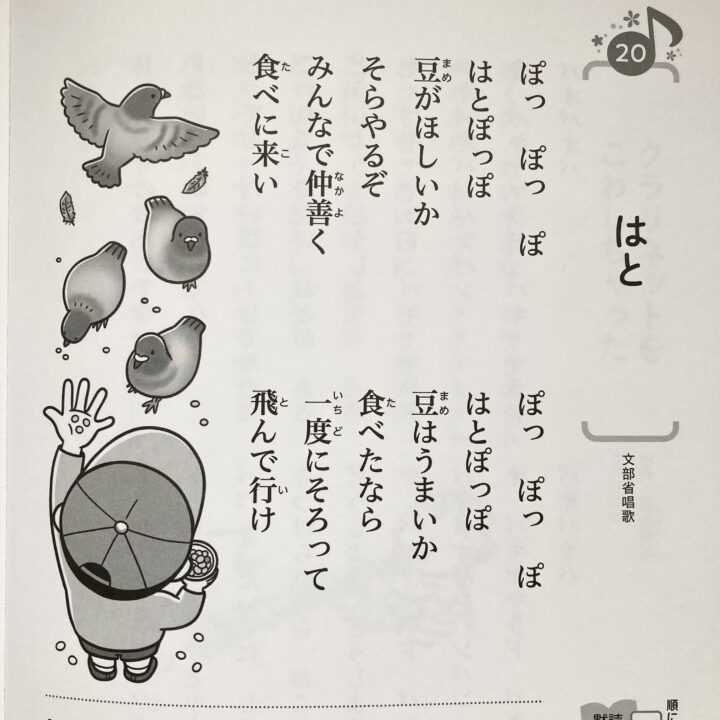 20
はと
文部省唱歌
ぽっ ぽっ ぽ
はとぽっぽ
豆がほしいか
そらやるぞ
みんなで仲善く
食べに来い
ぽっ ぽっ ぽ
はとぽっぽ
豆はうまいか
食べたなら
一度にそろって
飛んで行け
順に
黙読